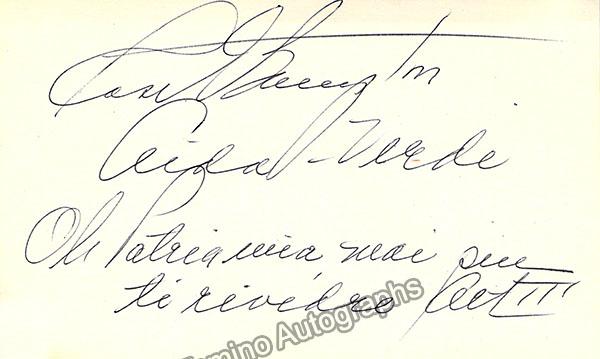 Rose Bampton
Aida - Verdi
Oh Patria mia mai piu
ti rivedro Act III
Tamino Autographs